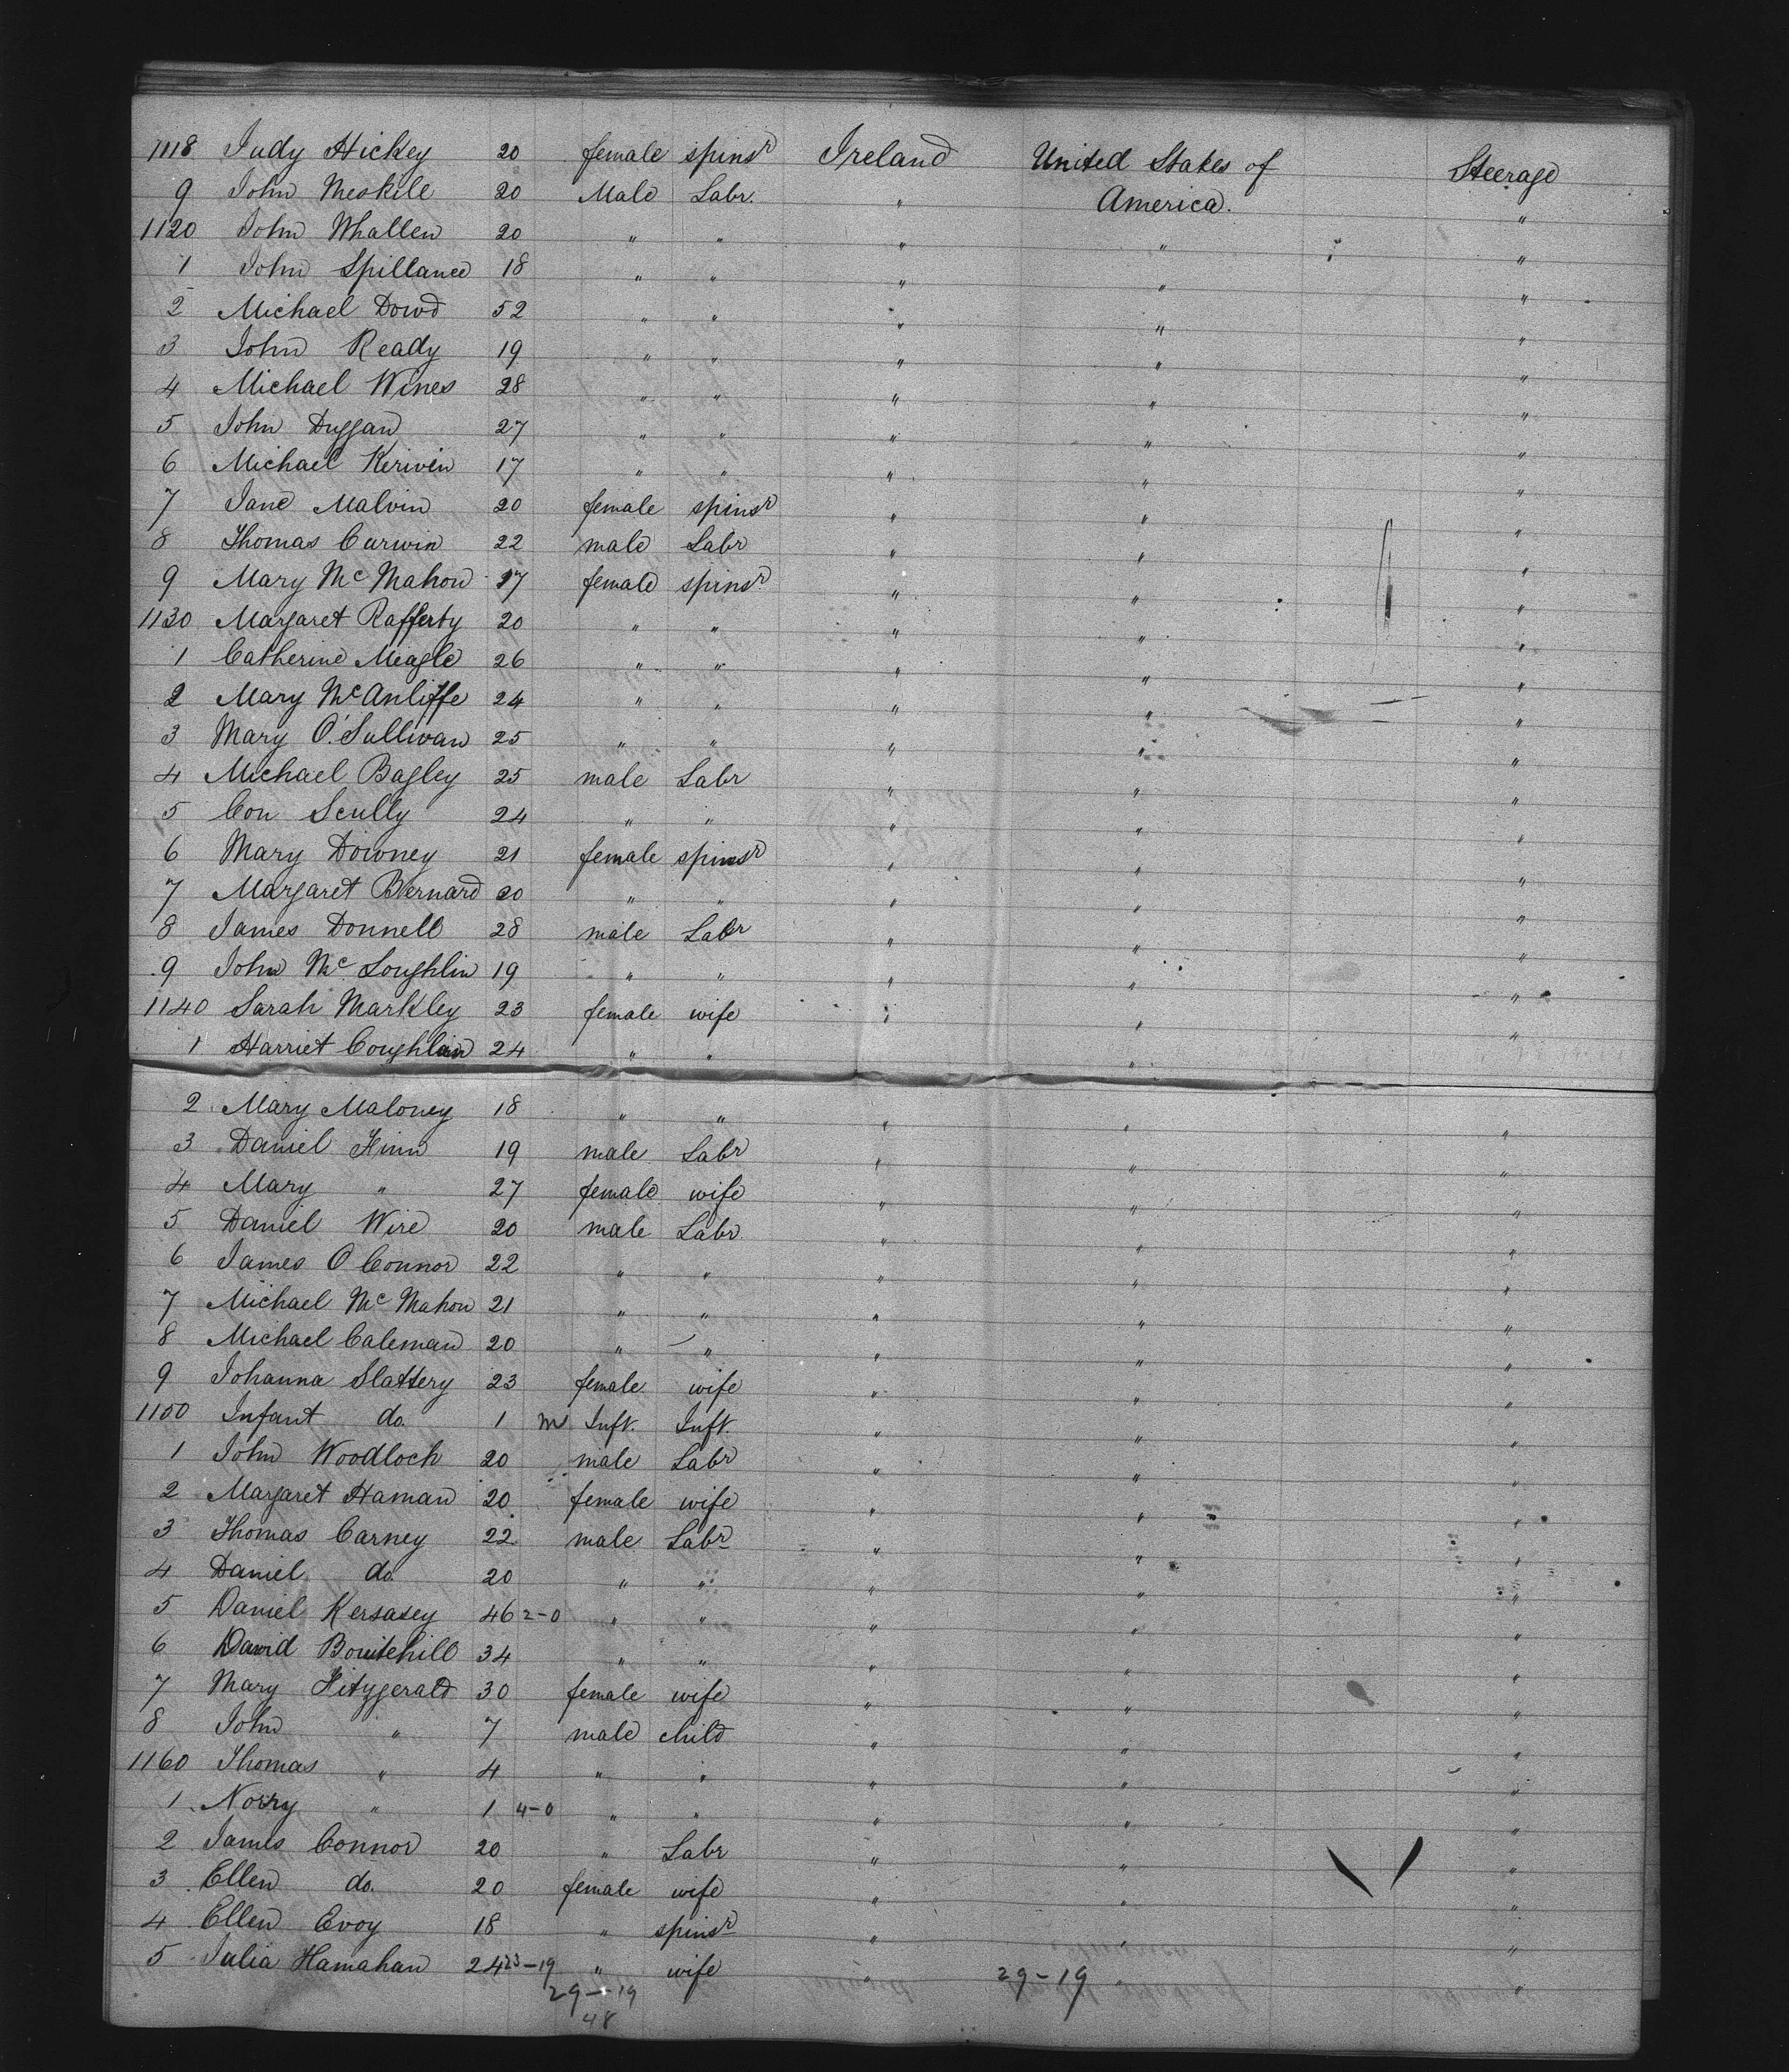 1118 Judy Hickey 20 female spinsr Ireland United States of Steerage
9 John Meskile 20 Male Labr. " America. "
1120 John Whallen 20 " " " " "
1 John Spillance 18 " " " " "
2 Michael Dowd 52 " " " " "
3 John Ready 19 " " " " "
4 Michael Wines 28 " " " " "
5 John Duggan 27 " " " " "
6 Michael Kerivin 17 " " " " "
7 Jane Malvin 20 female spinsr " " "
8 Thomas Curwin 22 male Labr " " "
9 Mary McMahon 17 female spinsr " " "
1130 Margaret Rafferty 20 " " " " "
1 Catherine Meagle 26 " " " " "
2 Mary McAnliffe 24 " " " " "
3 Mary O'Sullivan 25 " " " " "
4 Michael Bagley 25 male Labr " " "
5 Con Scully 24 " " " " "
6 Mary Downey 21 female spinsr " " "
7 Margaret Bernard 20 " " " " "
8 James Donnell 28 male Labr " " "
9 John McLoughlin 19 " " " " "
1140 Sarah Markley 23 female wife " " "
1 Harriet Coughlan 24 " " "
2 Mary Maloney 18 " " " " "
3 Daniel Finn 19 male Labr " " "
4 Mary " 27 female wife " " "
5 Daniel Wire 20 male Labr. " " "
6 James O Connor 22 " " " " "
7 Michael McMahon 21 " " " " "
8 Michael Caleman 20 " " " " "
9 Johanna Slattery 23 female wife " " "
1150 Infant do. 1 m Inft. Inft. " " "
1 John Woodloch 20 male Labr " " "
2 Margaret Haman 20 female wife " " "
3 Thomas Carney 22 male Labr " " "
4 Daniel do. 20 " " " " "
5 Daniel Kersasey 46 2-0 " " " " "
6 David Boutehill 34 " " " " "
7 Mary Fitzgerald 30 female wife " " "
8 John " 7 male child " " "
1160 Thomas " 4 " " " " "
1 Norry " 1 4-0 " " " " "
2 James Connor 20 " Labr " " "
3 Ellen do. 20 female wife " " "
4 Ellen Evoy 18 " spinsr " " "
5 Julia Hamahan 24 23-19 " wife " " "
29-19 29-19
48